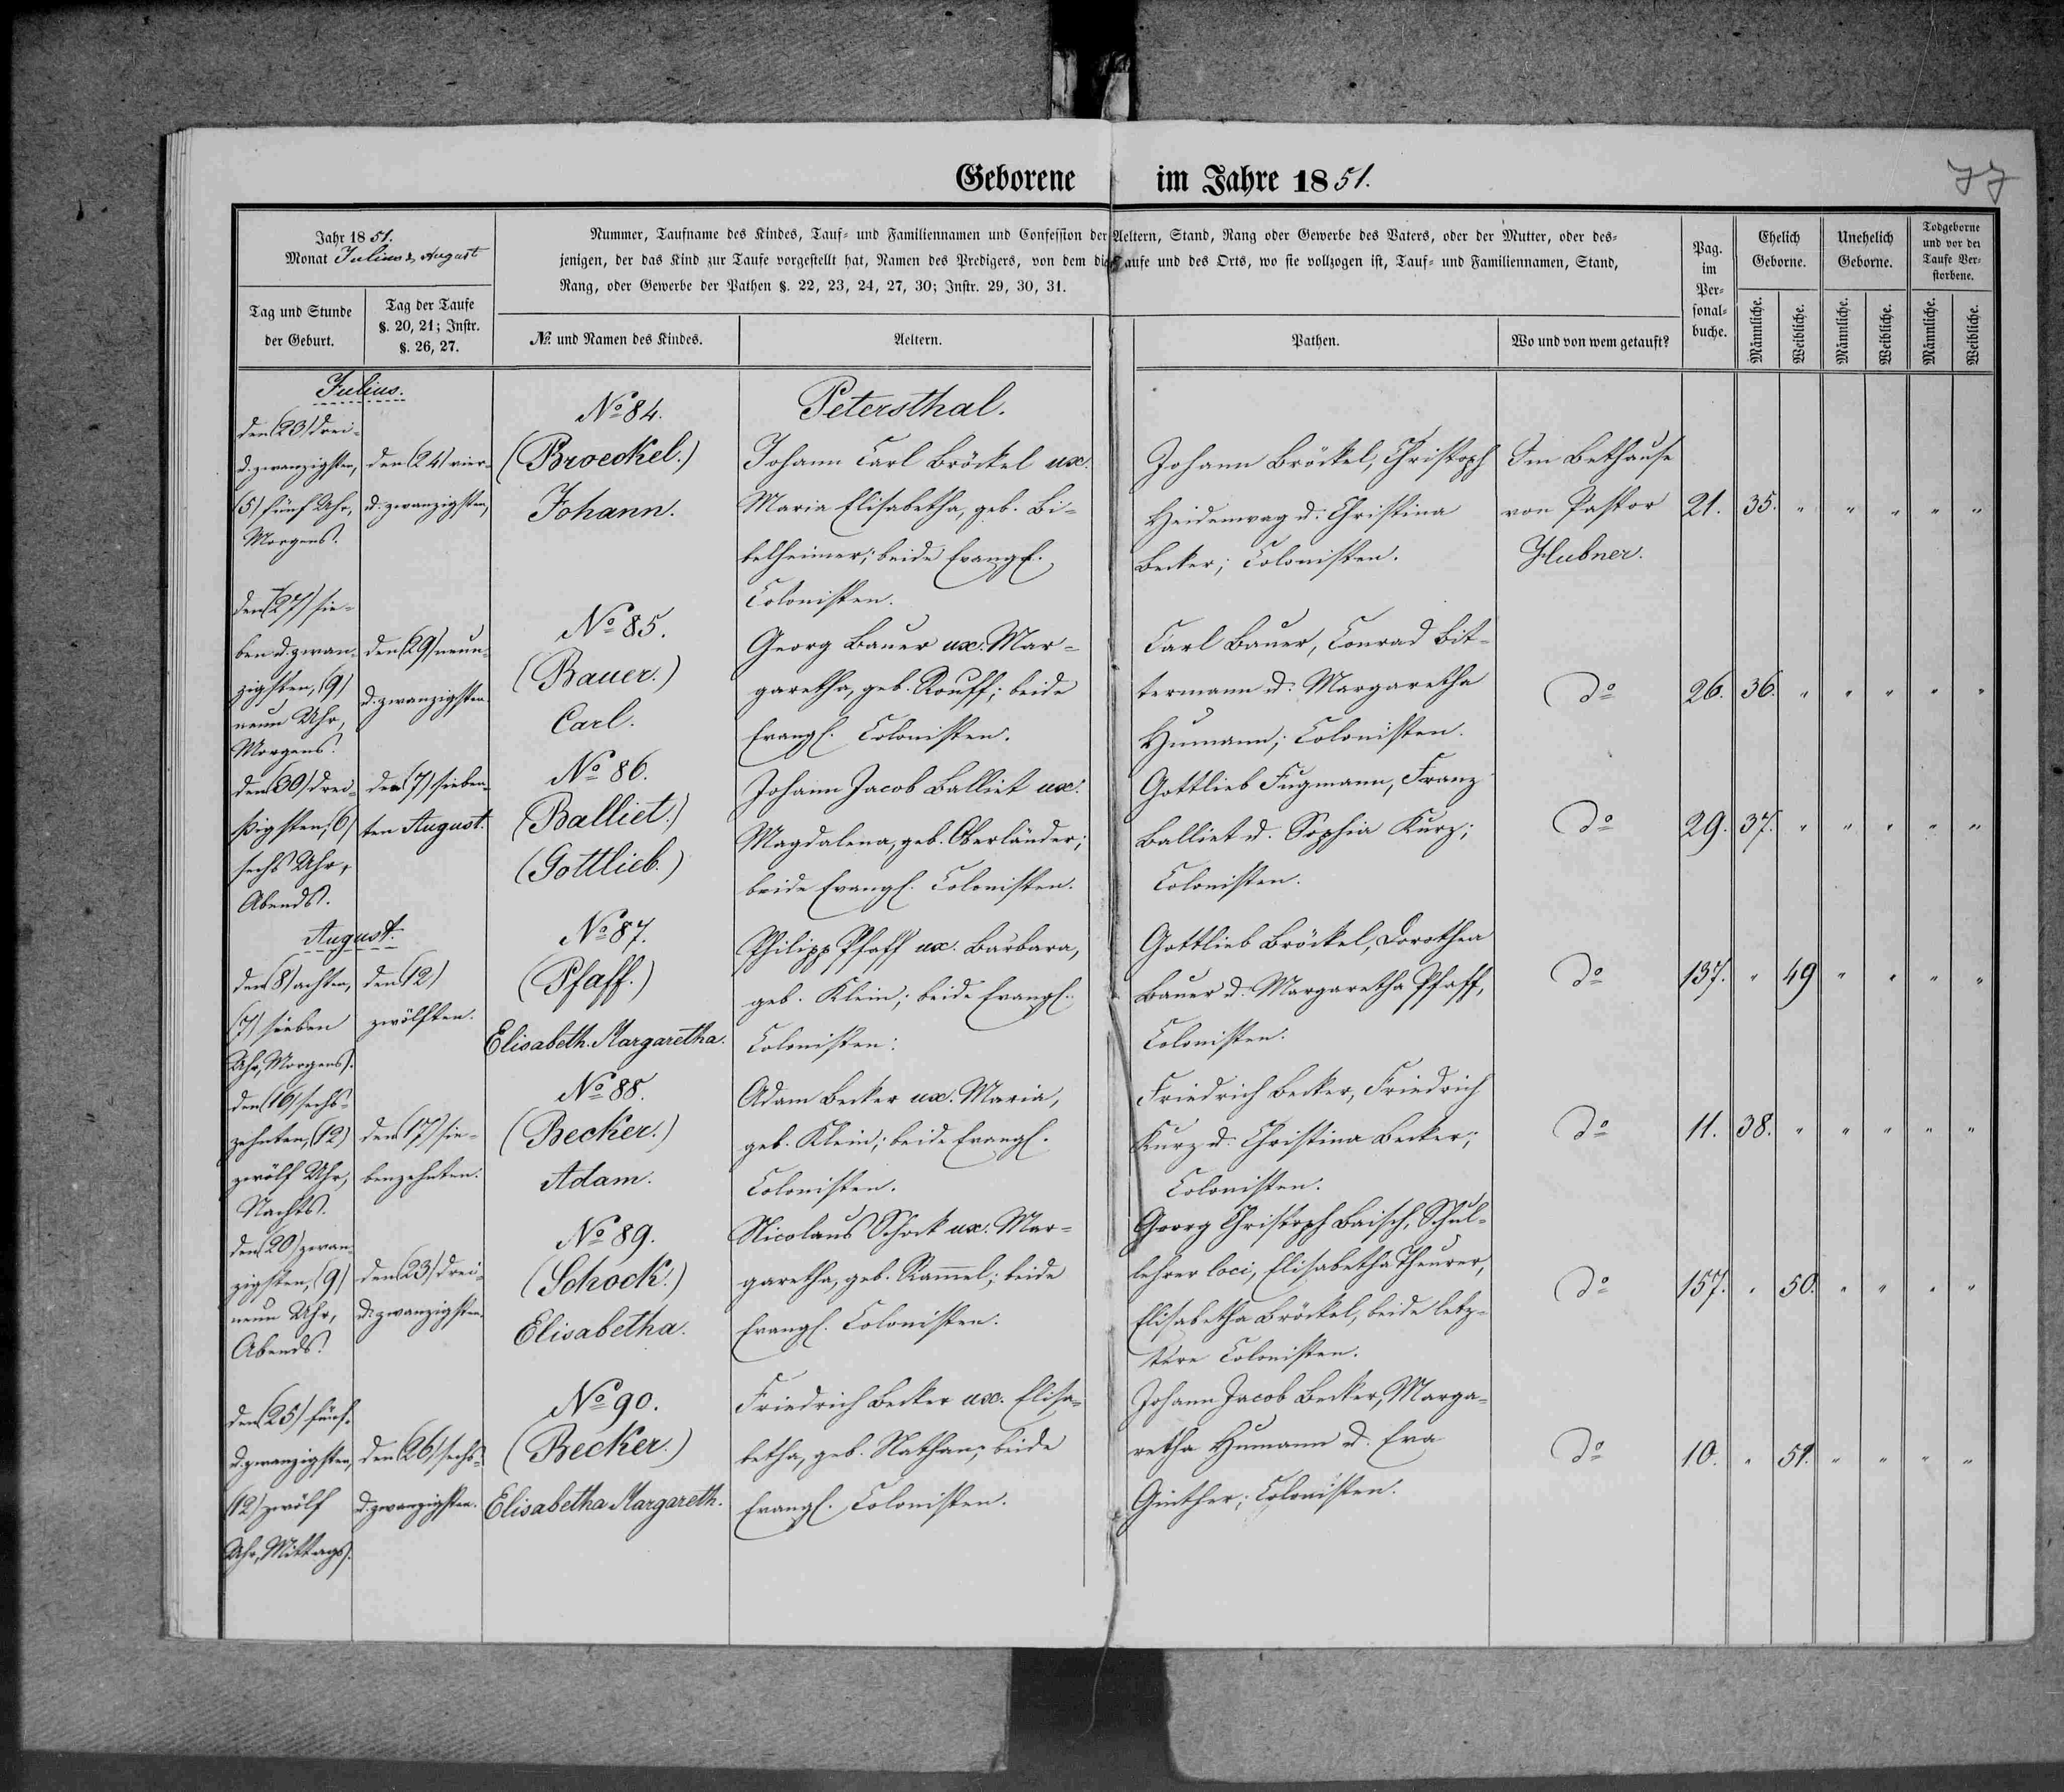 Geborene im Jahre 1851.
77
Jahr 1851.
Monat Julius & August
Nummer, Taufname des Kindes, Tauf- und Familiennamen und Confession der Aeltern, Stand, Rang oder Gewerbe des Vaters, oder der Mutter, oder des-
jenigen, der das Kind zur Taufe vorgestellt hat, Namen des Predigers, von dem die Taufe und des Orts, wo sie vollzogen ist, Tauf- und Familiennamen, Stand,
Rang, oder Gewerbe der Pathen §. 22, 23, 24, 27, 30; Instr. 29, 30, 31.
Pag.
im
Per-
sonal-
buche.
Ehelich
Geborne.
Unehelich
Geborne.
Todgeborne
und vor der
Taufe Ver-
storbene.
Tag und Stunde
der Geburt.
Tag der Taufe
§. 20, 21; Instr.
§. 26, 27.
№ und Namen des Kindes.
Aeltern.
Pathen.
Wo und von wem getauft?
Männliche.
Weibliche.
Männliche.
Weibliche.
Männliche.
Weibliche.
Julius.
den (23) drei-
u. zwanzigsten,
(5) fünf Uhr,
Morgens.
den (24) vier-
u. zwanzigsten,
No 84.
(Broeckel.)
Johann.
Petersthal.
Johann Carl Bröckel ux.
Maria Elisabetha, geb. Bi-
belheimer; beide Evangl.
Colonisten.
Johann Bröckel, Christoph
Heidenwag u. Christina
Becker; Colonisten.
Im Bethause
von Pastor
Hubner.
21. 35. " " " " "
den (27) sie-
ben u. zwan-
zigsten, (9)
neun Uhr,
Morgens.
den (29) neun-
u. zwanzigsten
No 85.
(Bauer.)
Carl.
Georg Bauer ux. Mar-
garetha, geb. Rouff; beide
Evangl. Colonisten.
Carl Bauer, Conrad Bit-
termann u. Margaretha
Humann; Colonisten.
do
26. 36. " " " " "
den (30) drei-
ßigsten, (6)
sechs Uhr,
Abends.
den (7) sieben-
ten August.
No 86.
(Balliet.)
(Gottlieb.)
Johann Jacob Balliet ux.
Magdalena, geb. Oberländer;
beide Evangl. Colonisten.
Gottlieb Fugmann, Franz
Balliet u. Sophia Kurz;
Colonisten.
do
29. 37. " " " " "
August.
den (8) achten,
(7) sieben
Uhr, Morgens.
den (12)
zwölften.
No 87.
(Pfaff.)
Elisabeth. Margaretha.
Philipp Pfaff ux. Barbara,
geb. Klein; beide Evangl.
Colonisten.
Gottlieb Bröckel, Dorothea
Bauer u. Margaretha Pfaff,
Colonisten.
do
137. " 49 " " " "
den (16) sechs-
zehnten, (12)
zwölf Uhr,
Nachts.
den (17) sie-
benzehnten.
No 88.
(Becker.)
Adam.
Adam Becker ux. Maria,
geb. Klein; beide Evangl.
Colonisten.
Friedrich Becker, Friedrich
Kurz u. Christina Becker;
Colonisten.
do
11. 38. " " " " "
den (20) zwan-
zigsten, (9)
neun Uhr,
Abends.
den (23) drei-
u. zwanzigsten.
No 89.
(Schock.)
Elisabetha.
Nicolaus Schock ux. Mar-
garetha, geb. Rammel; beide
Evangl. Colonisten.
Georg Christoph Baisch, Schul-
lehrer loci, Elisabetha Theurer,
Elisabetha Bröckel, beide letz-
tere Colonisten.
do
157. " 50. " " " "
den (25) fünf-
u. zwanzigsten,
(12) zwölf
Uhr, Mittags.
den (26) sechs-
u. zwanzigsten.
No 90.
(Becker.)
Elisabetha Margareth.
Friedrich Becker ux. Elisa-
betha, geb. Nathan; beide
Evangl. Colonisten.
Johann Jacob Becker, Marga-
retha Humann u. Eva
Günther; Colonisten.
do
10. " 51. " " " "